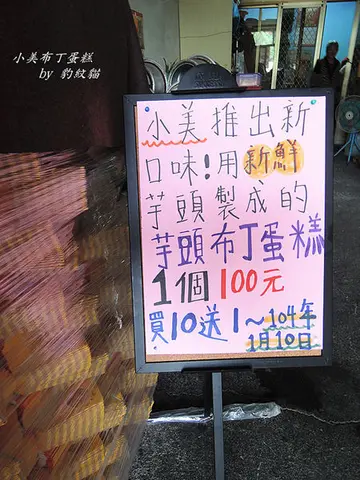 小美布丁蛋糕
by 豹紋貓
小美推出新
口味!用新鮮
芋頭製成的
芋頭布丁蛋糕
1個100元
買10送1~104年
1月10日